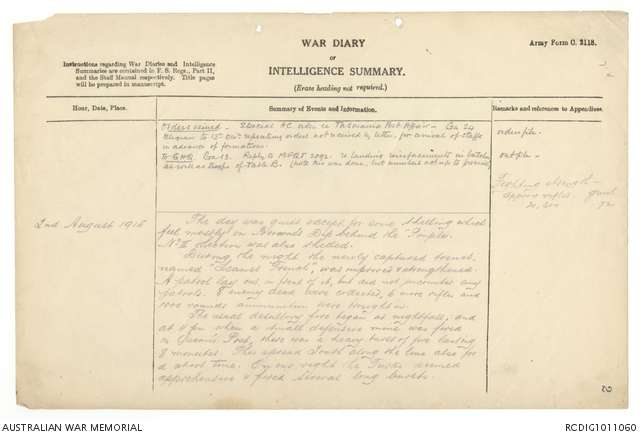 WAR DIARY
or
INTELLIGENCE SUMMARY.
(Erase heading not required.)
Army Form C. 2118.
Instructions regarding War Diaries and Intelligence
Summaries are contained in F. S. Regs., Part II,
and the Staff Manual respectively. Title pages
will be prepared in manuscript.
Hour, Date, Place.
Summary of Events and Information.
Remarks and references to Appendices.
Special AC order re Tasmania Post Affair - Ga 24
repeating orders not received by letter, for arrival of staffs
in advance of formations.
orders file.
To GHQ. Ga 13. Reply to re landing reinforcements in batches
as well as troops of Table B. (note this was done, but number not up to
out file.
Fighting strength
approx rifles.
20,200
2nd August 1915
The day was quiet except for some shelling which
fell mostly on behind the "Pimple".
No II Section was also shelled.
During the night the newly captured trench,
named "Leane's Trench", was improved & strengthened.
A patrol lay out in front of it, but did not encounter any
patrols. 8 enemy dead were collected, 6 more rifles and
1000 rounds ammunition were brought in.
The usual desultory fire began at nightfall, and
at 9 pm when a small defensive mine was fired
in Quinn's Post, there was a heavy burst of fire lasting
8 minutes. This spread South along the line also for
a short time. On our right the Turks seemed
apprehensive & fired several long bursts.
AUSTRALIAN WAR MEMORIAL
RCDIG1011060